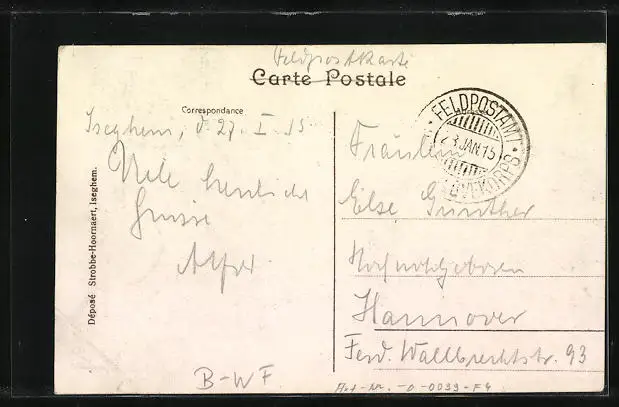 Feldpostkarte
Carte Postale
Correspondance
Iseghem, d. 27. I. 15
Viele herzliche
Grüsse
Alfr.
Déposé Strobbe-Hoornaert, Iseghem.
FELDPOSTAMT
28 JAN 15
VEKORPS
Fräulein
Else Günther
Hochwohlgeboren
Hannover
Ferd. Wallbrechtstr. 93
B-WF
Art-Nr. -0-0033-F4